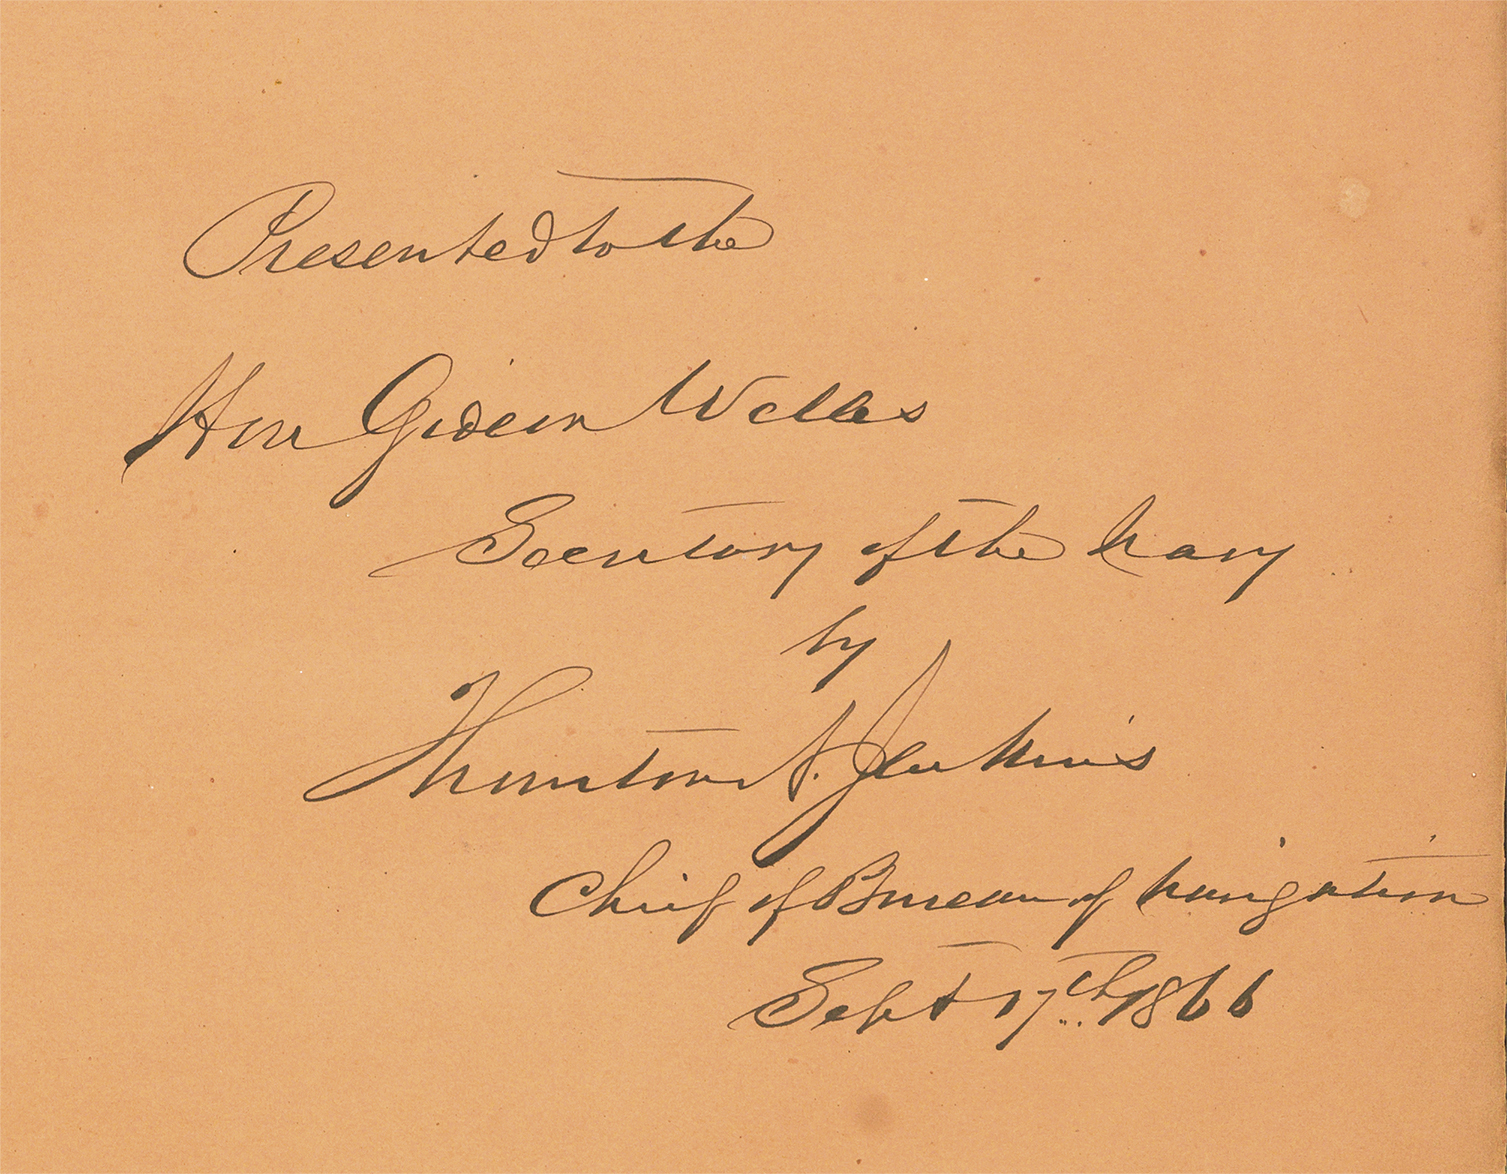 Presented to the
Hon Gideon Welles
Secretary of the Navy
by
Thornton A. Jenkins
Chief of Bureau of Navigation
Sept 17th 1866